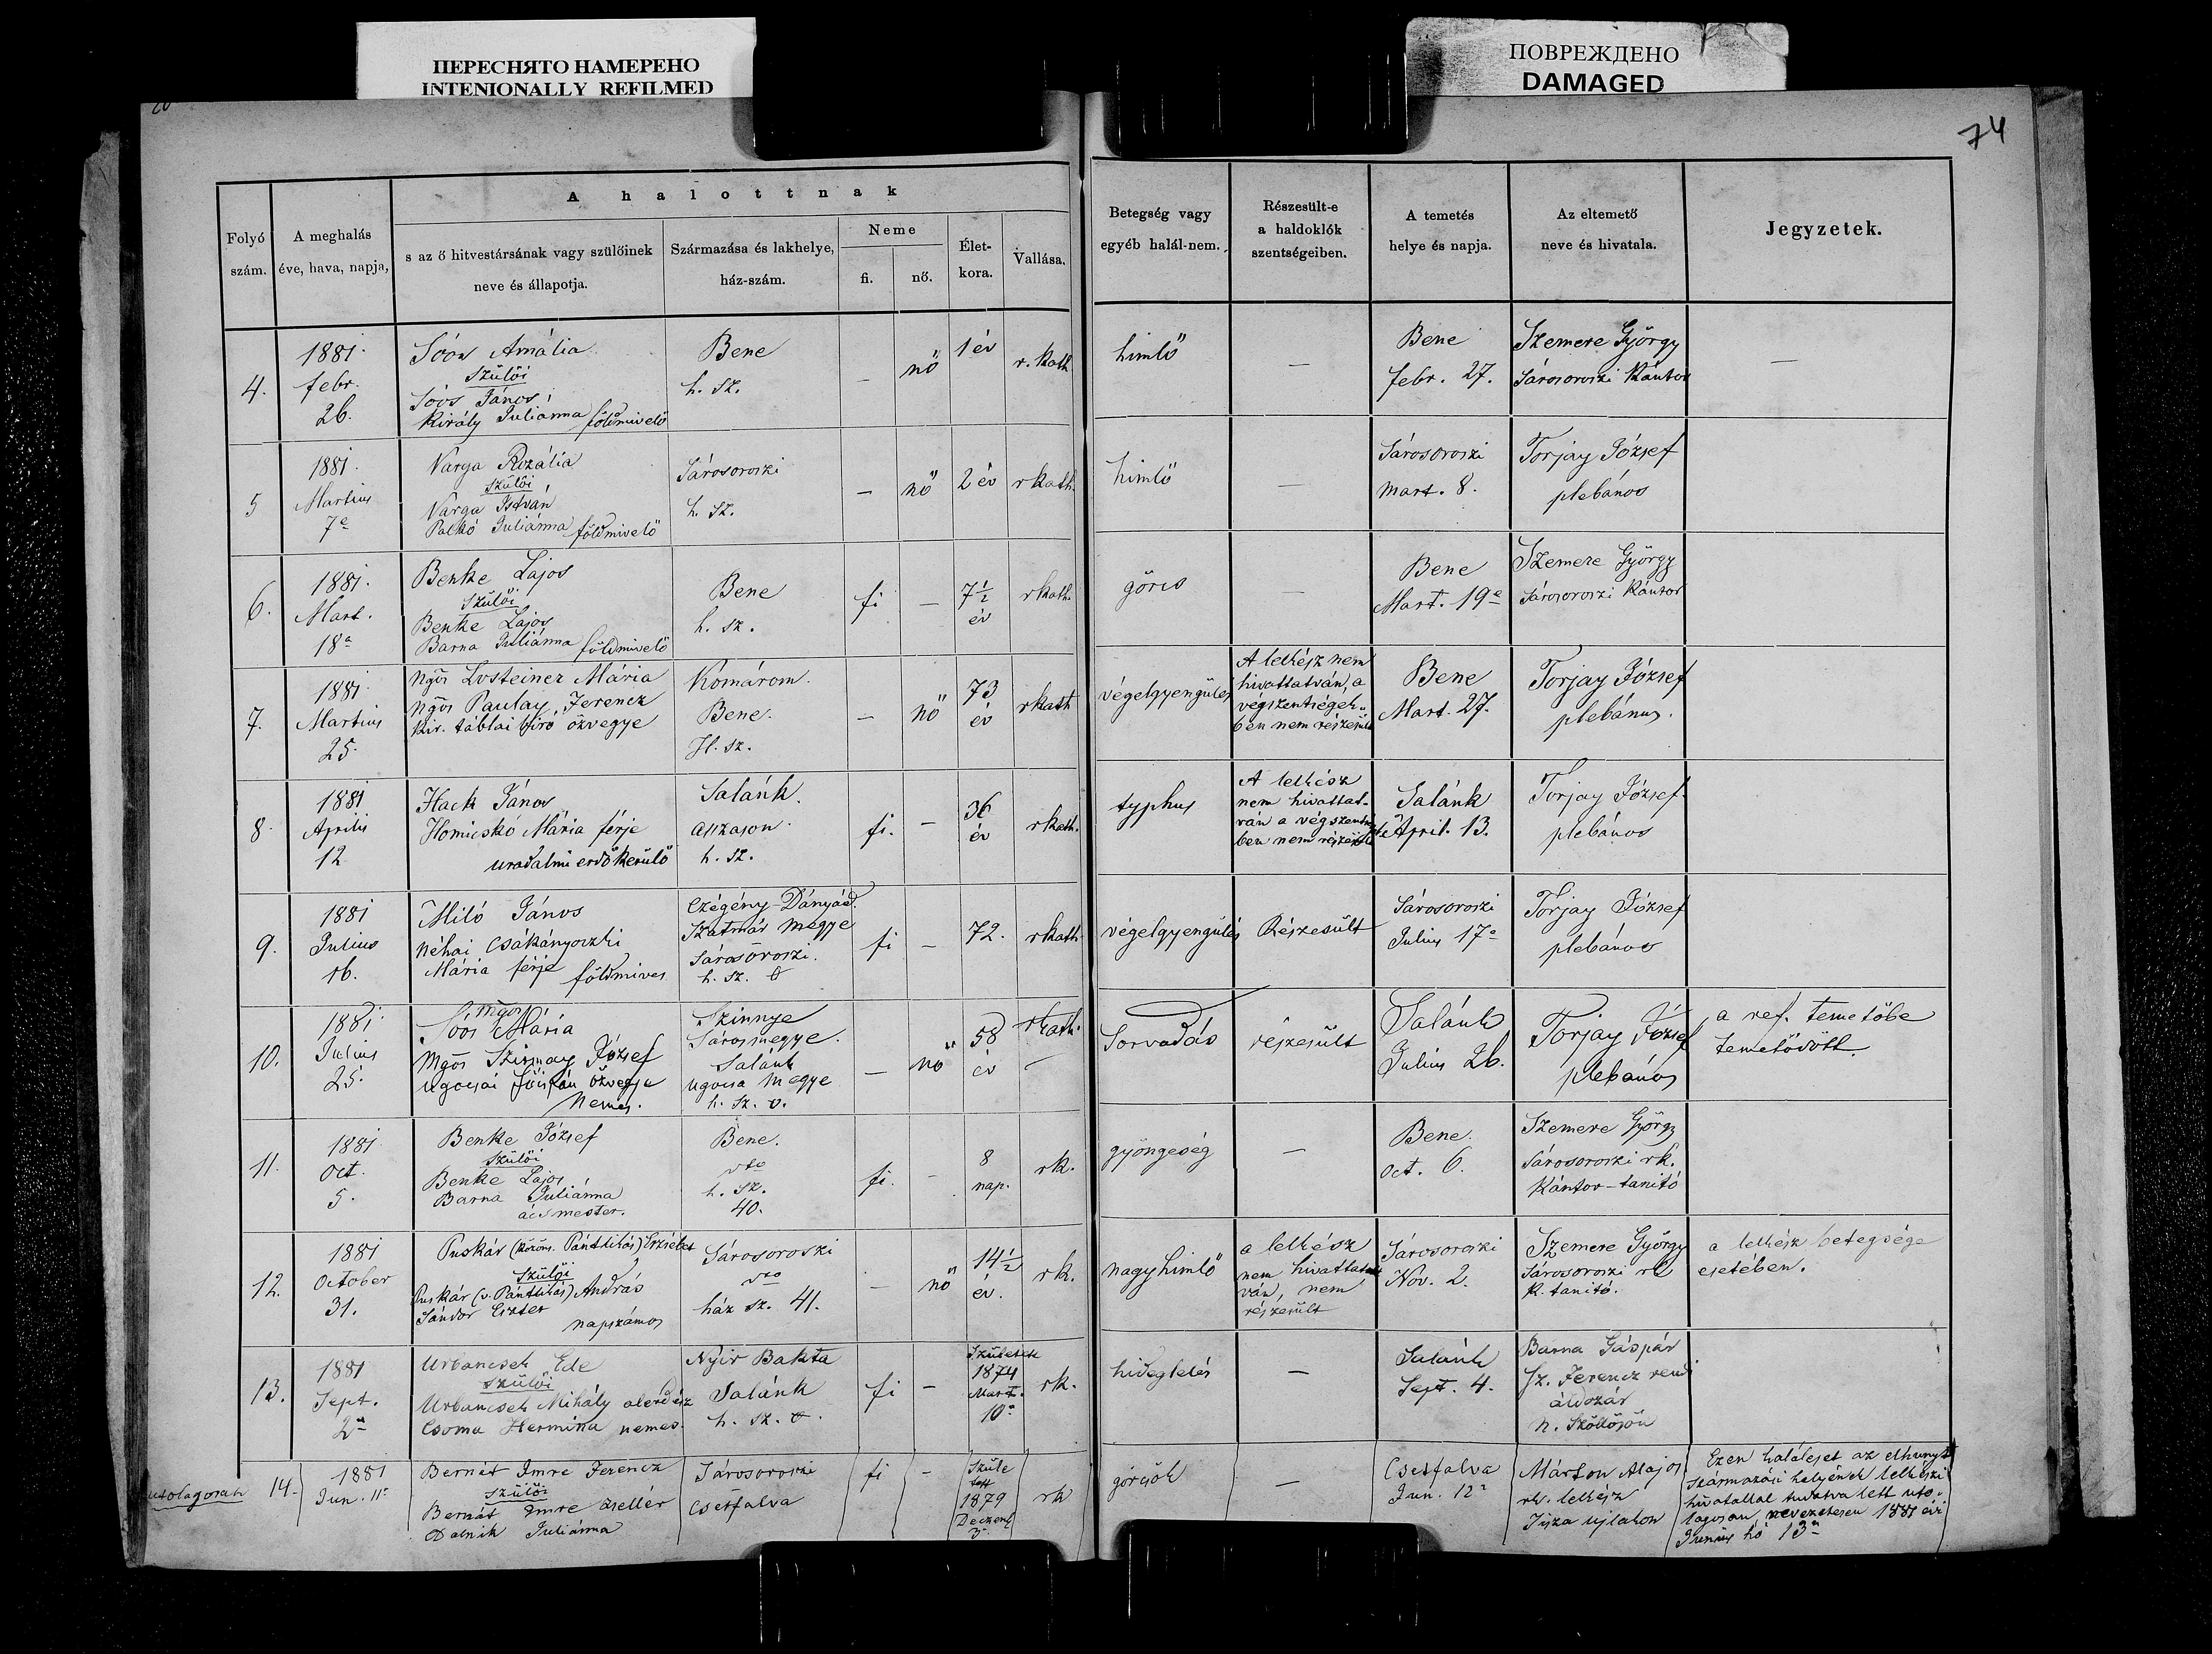 ПЕРЕСНЯТО НАМЕРЕНО
INTENIONALLY REFILMED
ПОВРЕЖДЕНО
DAMAGED
74
A halottnak
Folyó szám.
A meghalás éve, hava, napja,
s az ő hitvestársának vagy szülőinek neve és állapotja.
Származása és lakhelye, ház-szám.
Neme
fi.
nő.
Élet-kora.
Vallása.
Betegség vagy egyéb halál-nem.
Részesült-e a haldoklók szentségeiben.
A temetés helye és napja.
Az eltemető neve és hivatala.
Jegyzetek.
4.
1881.
febr.
26.
Soós Amália
Szülői
Soós János
Király Juliánna földmivelő
Bene
h. sz.
–
nő
1 év
r. kath
himlő
–
Bene
febr. 27.
Szemere György
Sárosoroszi Kántor
–
5
1881.
Martius
7e
Varga Rozália
Szülői
Varga István
Palkó Juliánna földmivelő
Sárosoroszi
h. sz.
–
nő
2 év
rkath.
himlő
–
Sárosoroszi
mart. 8.
Torjay József
plebános
6.
1881.
Mart.
18a
Benke Lajos
Szülői
Benke Lajos
Barna Juliánna földmivelő
Bene
h. sz.
fi
–
7 1/2
év
rkath.
görcs
–
Bene
Mart. 19e
Szemere György
Sárosoroszi Kántor
7.
1881
Martius
25.
Ngős Losteiner Mária
Ngős Paulay Ferencz
Kir. táblai biró özvegye
Komárom.
Bene.
H. sz.
–
nő
73
év
rkath
végelgyengülés
A lelkész nem
hivattatván, a
végszentségek-
ben nem részesült
Bene
Mart. 27.
Torjay József
plebánus.
8.
1881
Aprilis
12
Hack János
Homicskó Mária férje
uradalmi erdőkerülő
Salánk.
h. sz.
fi.
–
36
év
rkath.
typhus
A lelkész
nem hivattat-
ván a
ben nem részesült
Salánk
April. 13.
Torjay József
plebános
9.
1881
Julius
16.
Miló János
néhai Csákányoszki
Mária férje földmives
Czégény-Dányád.
Szatmár megye
Sárosoroszi.
h. sz. 0
fi
–
72.
rkath
végelgyengülés
Részesült
Sárosoroszi
Julius 17e
Torjay József
plebános
10.
1881
Julius
25.
Mgős
Soós Mária
Mgős Szirmay József
ugocsai főispán özvegye
Nemes.
Szinnye
Sárosmegye.
Salánk
Ugocsa megye
h. sz. 0.
–
nő
58
év
rkath.
–
Sorvadás
részesült
Salánk
Julius 26.
Torjay József
plebános
a ref. temetőbe
temetődött.
11.
1881
Oct.
5.
Benke József
Szülői
Benke Lajos
Barna Juliánna
ácsmester.
Bene.
vto
h. sz.
40.
fi.
–
8
nap.
rk.
gyöngeség
–
Bene.
Oct. 6.
Szemere György
Sárosoroszi rk.
Kántor-tanitó
12.
1881
October
31.
Puskár (közöns. Pánttihás) Erzsébet
Szülői
Puskár (v. Pánttihás) András
Sándor Eszter
napszámos
Sárosoroszi
vto
ház sz. 41.
–
nő
14 1/2
év.
rk.
nagyhimlő
a lelkész
nem hivattat
ván, nem
részesült
Sárosoroszi
Nov. 2.
Szemere György
Sárosoroszi rk
K. tanitó.
a lelkész betegsége
esetében.
13.
1881
Sept.
2a
Urbancsek Ede
Szülői
Urbancsek Mihály alerdész
Csoma Hermina nemes.
Nyir Bakta
Salánk
h. sz. 0.
fi
–
Születék
1874
Mart.
10a
rk.
hideglelés
–
Salánk
Sept. 4.
Barna Gáspár
Sz. Ferencz rendi
áldozár
N. Szőllősön
utolagosan
14.
1881
Jun. 11a
Bernát Imre Ferencz
Szülői
Bernát Imre zsellér
Dalnik Juliánna
Sárosoroszi
Csetfalva
fi
–
Szüle
tett
1879
Deczemb
3.
rk
görcsök
–
Csetfalva
Jun. 12a
Márton Alajos
rk. lelkész
Tisza ujlakon
Ezen haláleset az elhunyt
származási helyének lelkészi
hivatallal tudatva lett uto-
lagosan, nevezetesen 1881 évi
Junius hó 13a